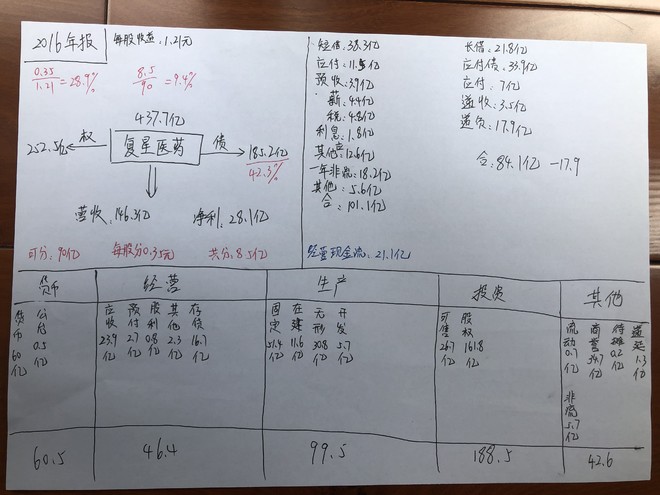 2016年报
每股收益:1.21元
0.35/1.21=28.9%
8.5/90=9.4%
437.7亿
252.5亿 权 复星医药 债 185.2亿
42.3%
营收:146.3亿 净利:28.1亿
可分:90亿 每股分0.35元 共分:8.5亿
短借:38.3亿
应付:11.5亿
预收:3.9亿
薪:4.4亿
税:4.8亿
利息:1.8亿
其他应:12.6亿
一年非流:18.2亿
其他:5.6亿
合:101.1亿
经营现金流:21.1亿
长借:21.8亿
应付债:33.9亿
应付:7亿
递收:3.5亿
递负:17.9亿
合:84.1亿 -17.9
货币 经营 生产 投资 其他
货币60亿
公允0.5亿
应收23.9亿
预付2.7亿
股利0.8亿
其他2.3亿
存债16.7亿
固定51.4亿
在建11.6亿
无形30.8亿
开发5.7亿
可售26.7亿
股权161.8亿
流动0.7亿
商誉34.7亿
待摊0.2亿
递延1.3亿
非流5.7亿
60.5 46.4 99.5 188.5 42.6